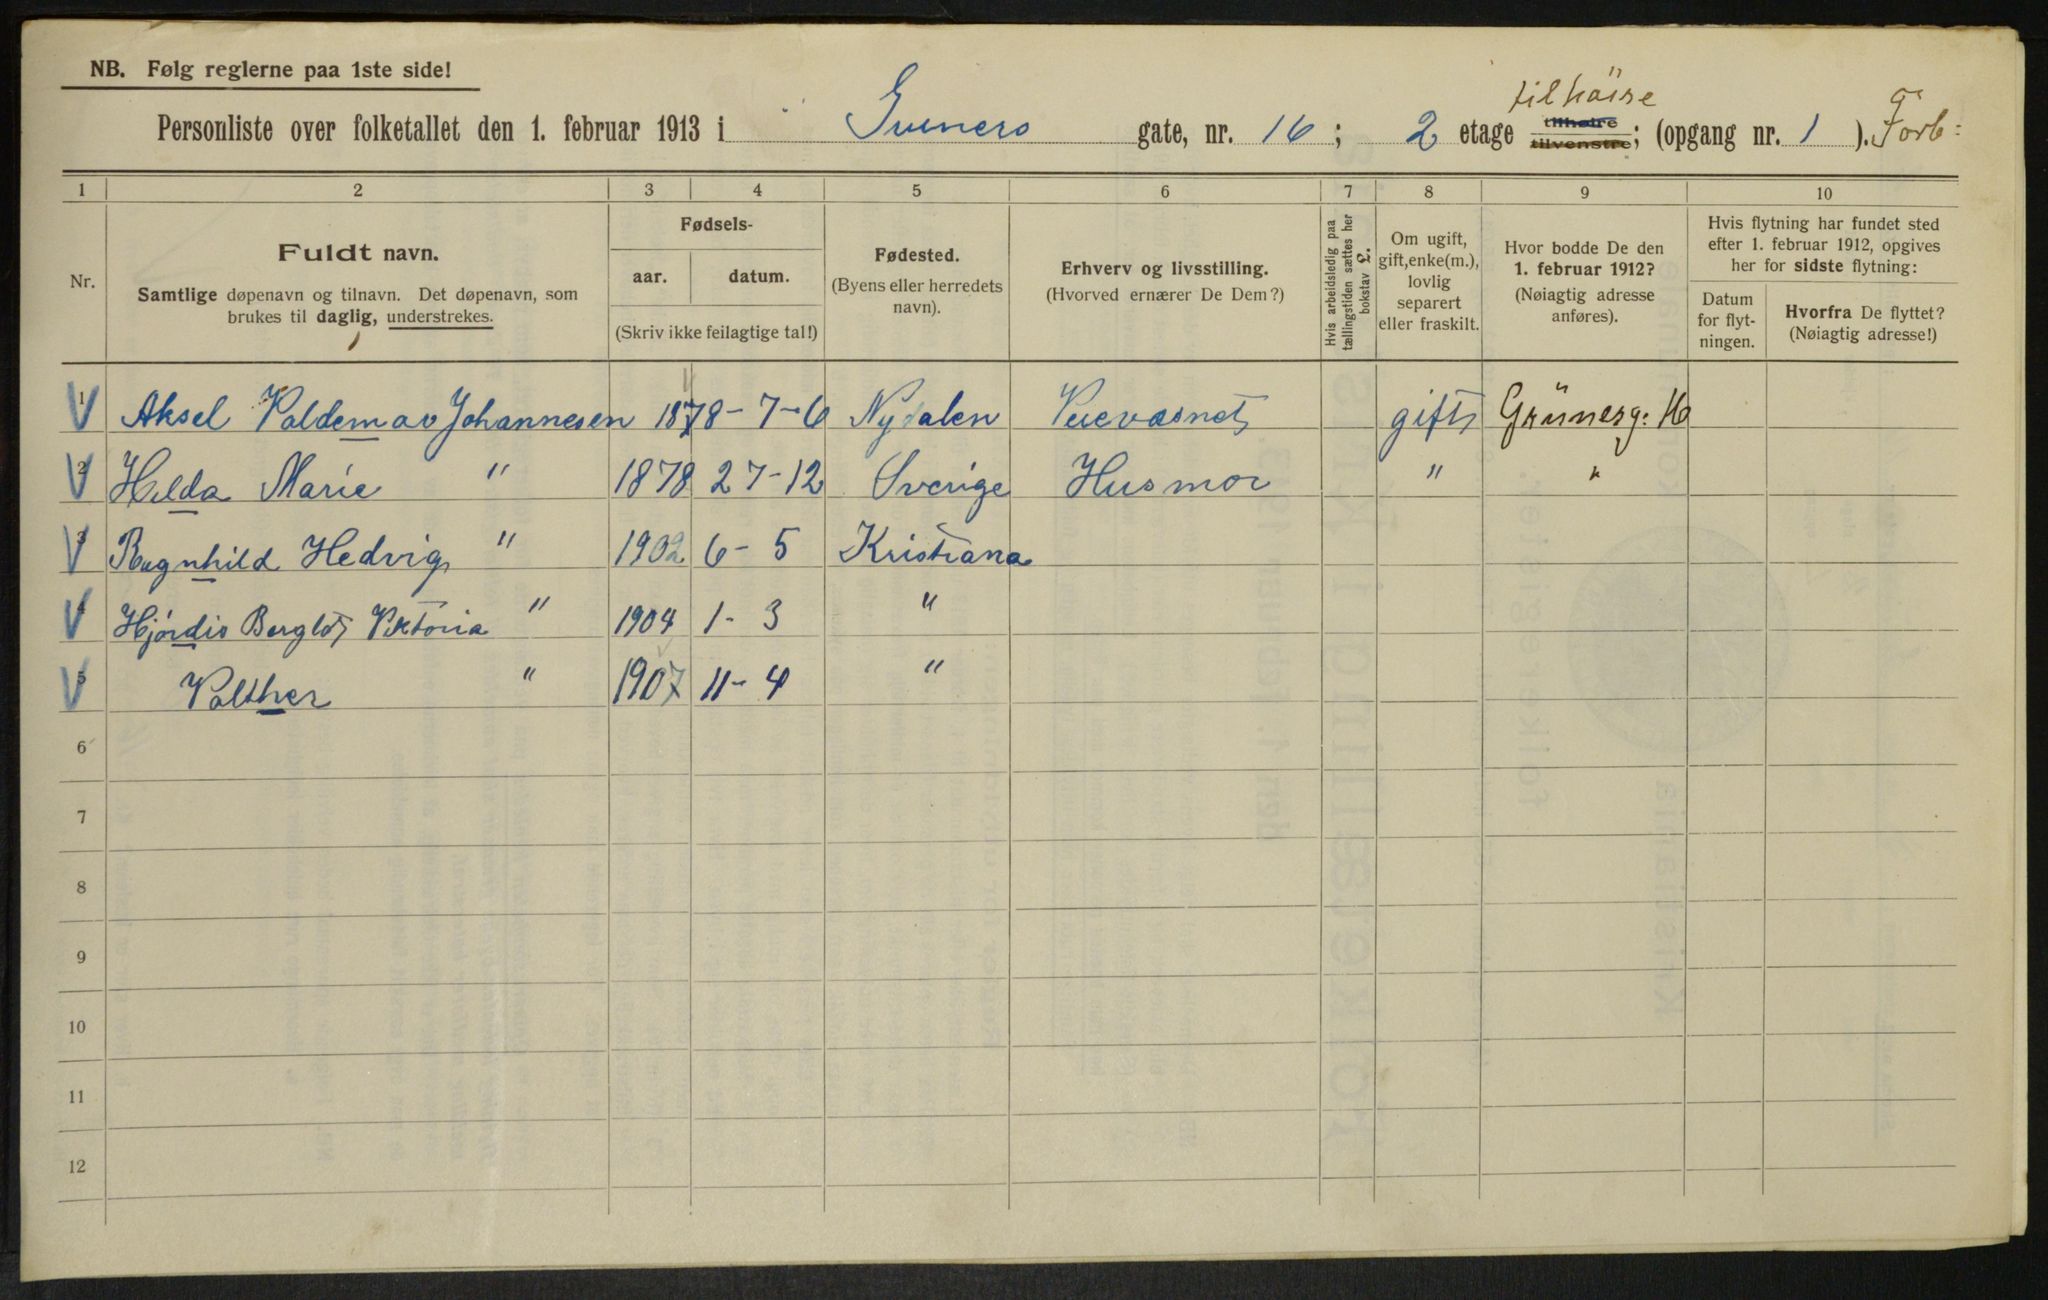 NB. Følg reglerne paa 1ste side!
tilhöire
Personliste over folketallet den 1. februar 1913 i Gruners gate, nr. 16; 2 etage tilhøire tilvenstre; (opgang nr. 1). Forb:
1 2 3 4 5 6 7 8 9 10
Nr.
Fuldt navn.
Samtlige døpenavn og tilnavn. Det døpenavn, som
brukes til daglig, understrekes.
Fødsels-
aar. datum.
(Skriv ikke feilagtige tal!)
Fødested.
(Byens eller herredets
navn).
Erhverv og livsstilling.
(Hvorved ernærer De Dem?)
Hvis arbeidsledig paa
tællingstiden sættes her
bokstav L.
Om ugift,
gift, enke(m.),
lovlig
separert
eller fraskilt.
Hvor bodde De den
1. februar 1912?
(Nøiagtig adresse
anføres).
Hvis flytning har fundet sted
efter 1. februar 1912, opgives
her for sidste flytning:
Datum
for flyt-
ningen.
Hvorfra De flyttet?
(Nøiagtig adresse!)
1 Aksel Valdemar Johannesen 1878 - 7-6 Nydalen gift Grünersg: 16
2 Hilda Marie " 1878 27-12 Sverige Husmor " "
3 Ragnhild Hedvig " 1902 6-5 Kristiana
4 Hjördis Berglöt Viktoria " 1904 1-3 "
5 Valther " 1907 11-4 "
6
7
8
9
10
11
12